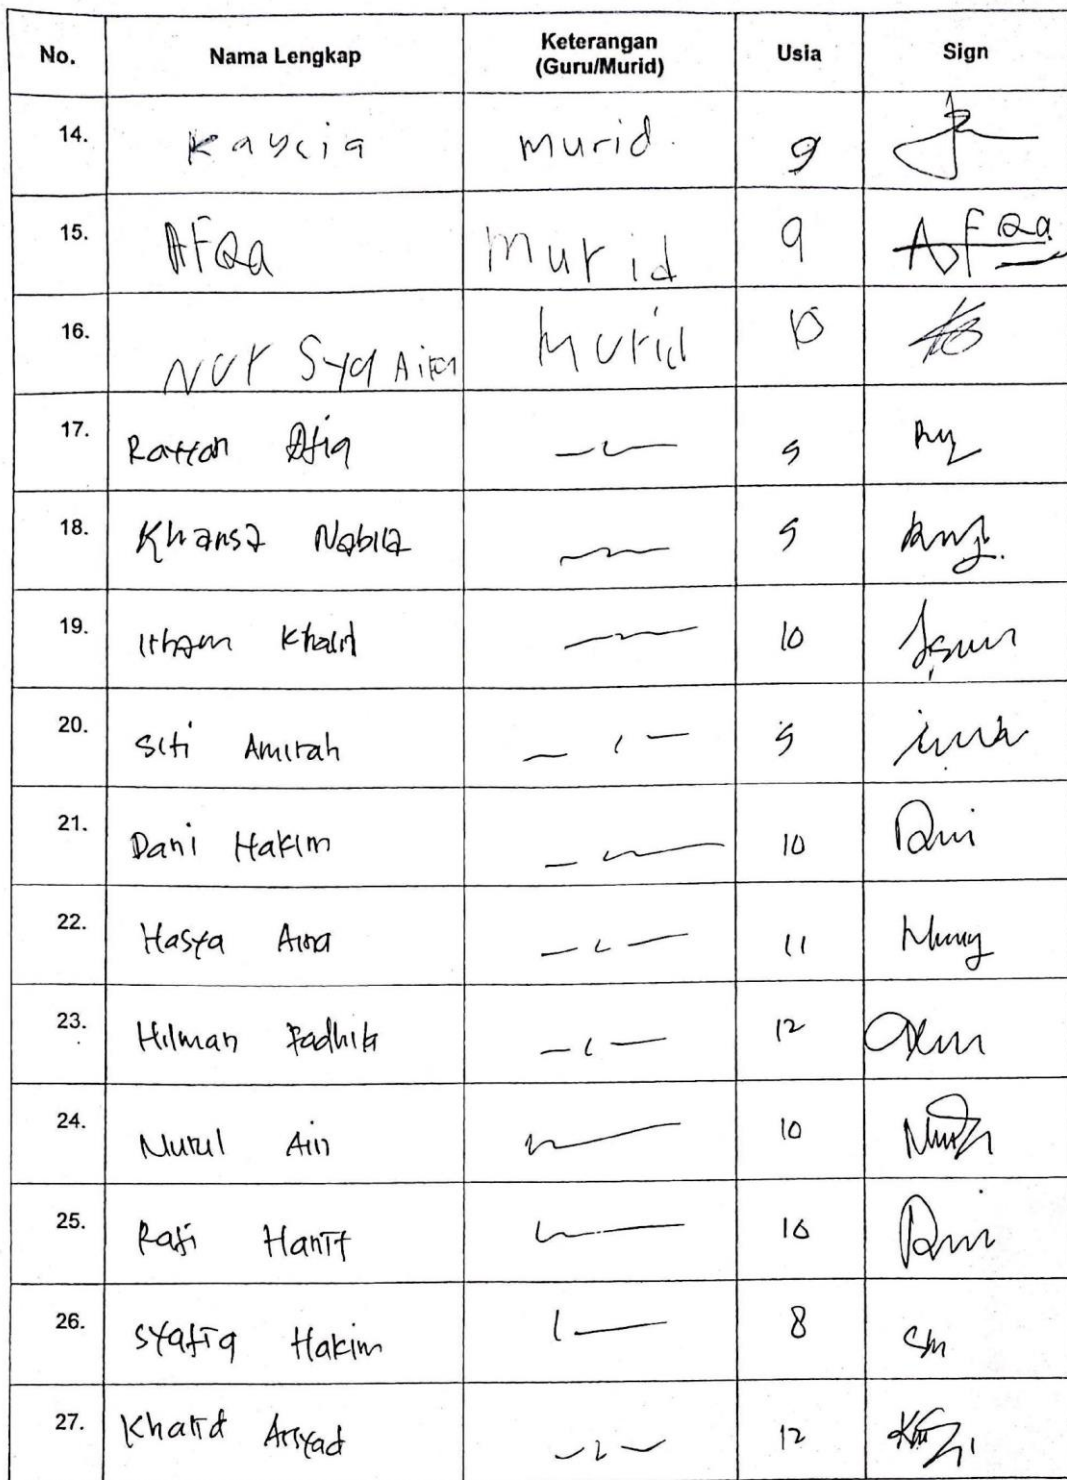 No. Nama Lengkap Keterangan (Guru/Murid) Usia Sign
14. Kaycia Murid. 9
15. AFQa Murid 9 AFQa
16. Nur Sya Murid 10
17. Rattan Afiq 9
18. Khansa Nabila 9
19. Ilham Khalid 10
20. Siti Amirah 9
21. Dani Hakim 10
22. Hasya Aina 11
23. Hilman Fadhil 12
24. Nurul Ain 10
25. Rafi Hanif 10
26. Syafiq Hakim 8
27. Khalid Arsyad 12